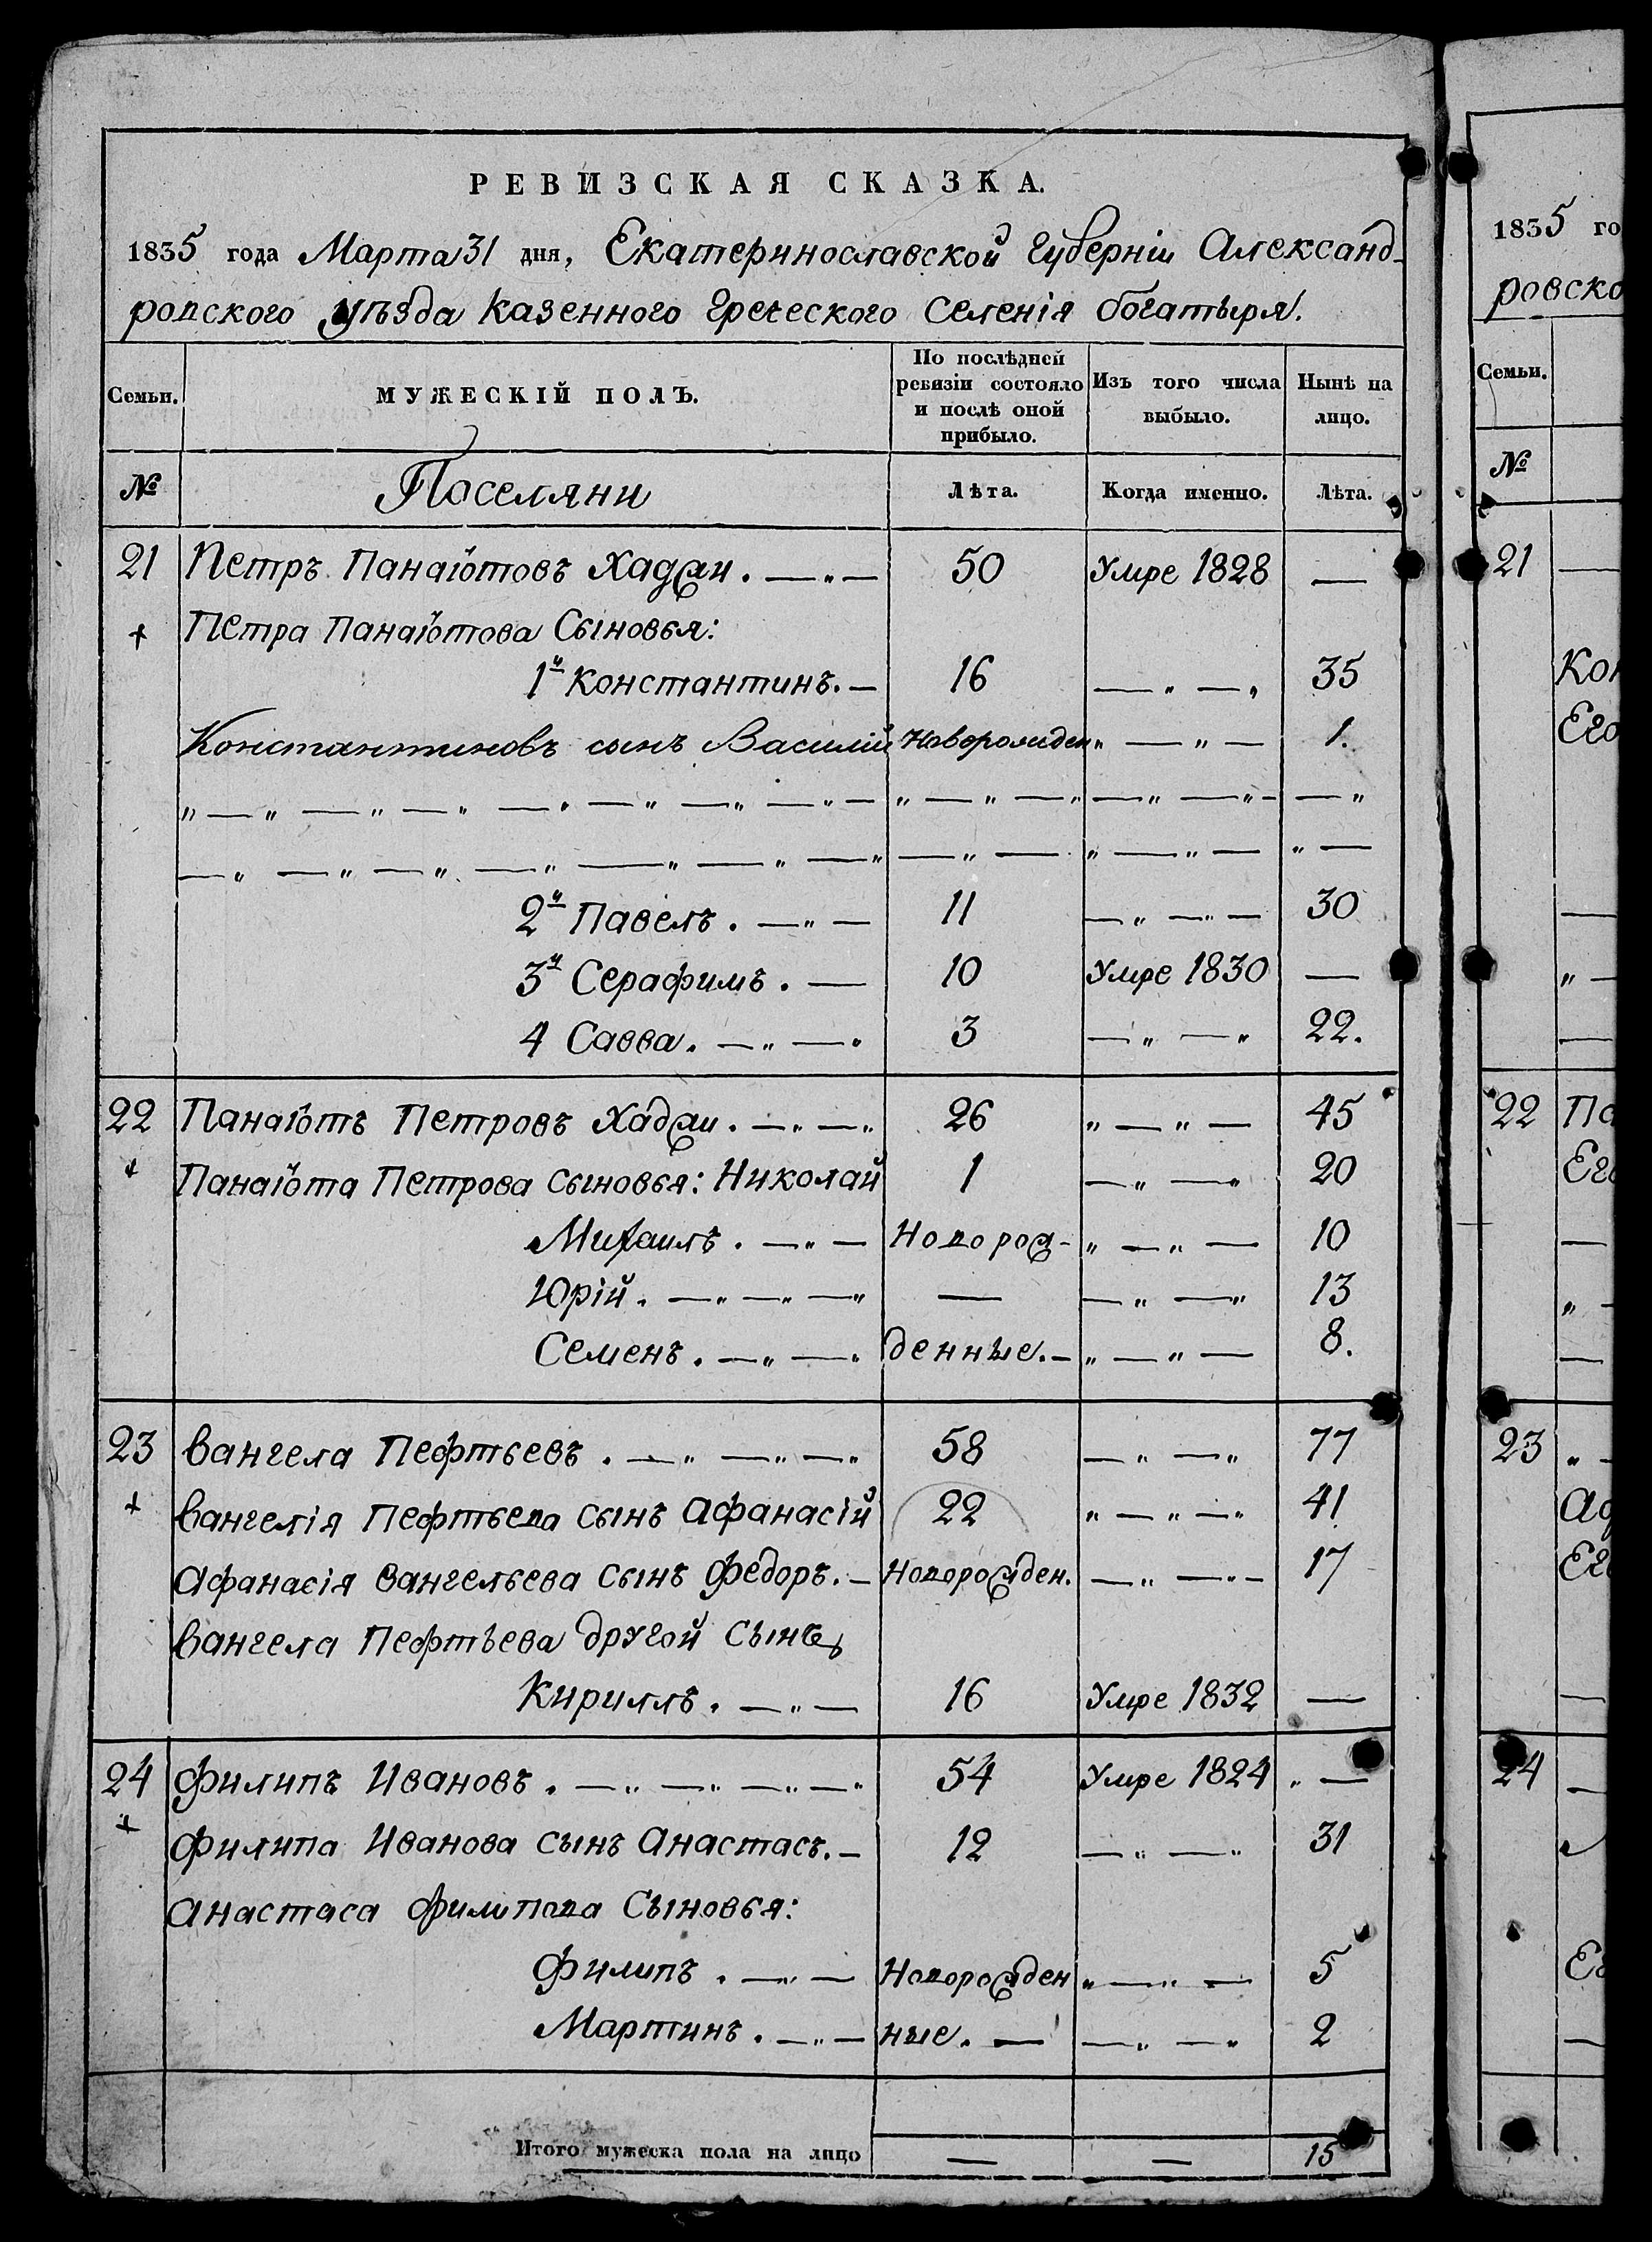 РЕВИЗСКАЯ СКАЗКА.
1835 года Марта 31 дня, Екатеринославской Губерніи Александ-
ровского уѣзда казенного Греческого Селенія Богатыря.
Семьи. МУЖЕСКІЙ ПОЛЪ. По послѣдней ревизіи состояло и послѣ оной прибыло. Изъ того числа выбыло. Нынѣ на лицо.
№ Поселяни Лѣта. Когда именно. Лѣта.
21 Петръ Панаіотовъ Хаджи. — „ — 50 Умре 1828 —
+ Петра Панаіотова Сыновья:
1й Константинъ. — 16 — „ — „ 35
Константиновъ сынъ Василій Новорожден „ — „ — 1.
„ — „ — „ — „ — „ — „ — „ — „ — „ — „ — „ — „ — „ — — „
— „ — „ — „ — „ — „ — „ — „ — „ — „ — „ — „ —
2й Павелъ. — „ — 11 — „ — „ — 30
3й Серафимъ. — 10 Умре 1830 —
4 Савва. — „ — „ 3 — „ — „ 22.
22 Панаіотъ Петровъ Хаджи. — „ — „ 26 „ — „ — 45
+ Панаіота Петрова Сыновья: Николай 1 — „ — „ 20
Михаилъ. — „ — Новорож- „ — „ — 10
Юрій. — „ — „ — „ — — „ — „ 13
Семенъ. — „ — „ денные. — „ — „ — 8.
23 Вангела Пефтьевъ. — „ — „ — „ 58 — „ — „ 77
+ Вангелія Пефтьева сынъ Афанасій 22 „ — „ — „ 41
Афанасія Вангельева сынъ Федоръ. — Новорожден. — „ — „ — 17
Вангела Пефтьева другой Сынъ
Кириллъ. — „ — 16 Умре 1832 —
24 Филипъ Ивановъ. — „ — „ — „ — „ 54 Умре 1824 „ —
+ Филипа Иванова сынъ Анастасъ. — 12 — „ — „ 31
Анастаса Филипова Сыновья:
Филипъ. — „ — Новорожден „ — „ — 5
Мартинъ. — „ — ные. — — „ — „ 2
Итого мужеска пола на лицо — — 15
1835 го
ровско
Семьи.
№
21 —
Кон
Его
—
„ —
—
22 Па
Его
—
„ —
—
23 „ —
Аф
Его
—
24 —
—